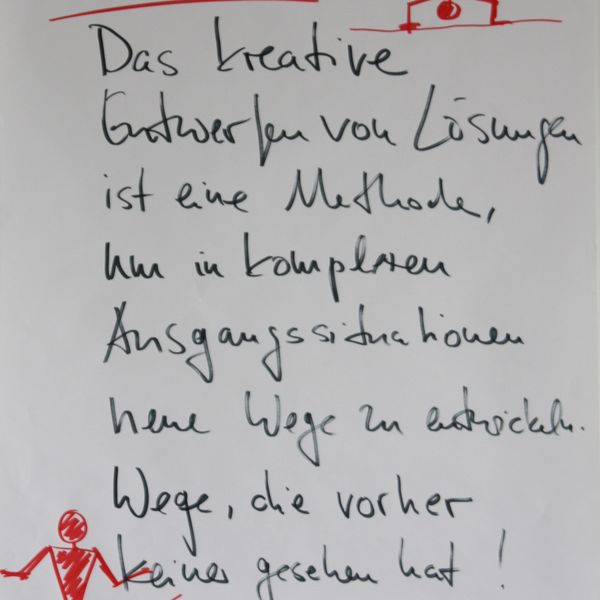 Das kreative
Entwerfen von Lösungen
ist eine Methode,
um in komplexen
Ausgangssituationen
neue Wege zu entwickeln.
Wege, die vorher
keiner gesehen hat!